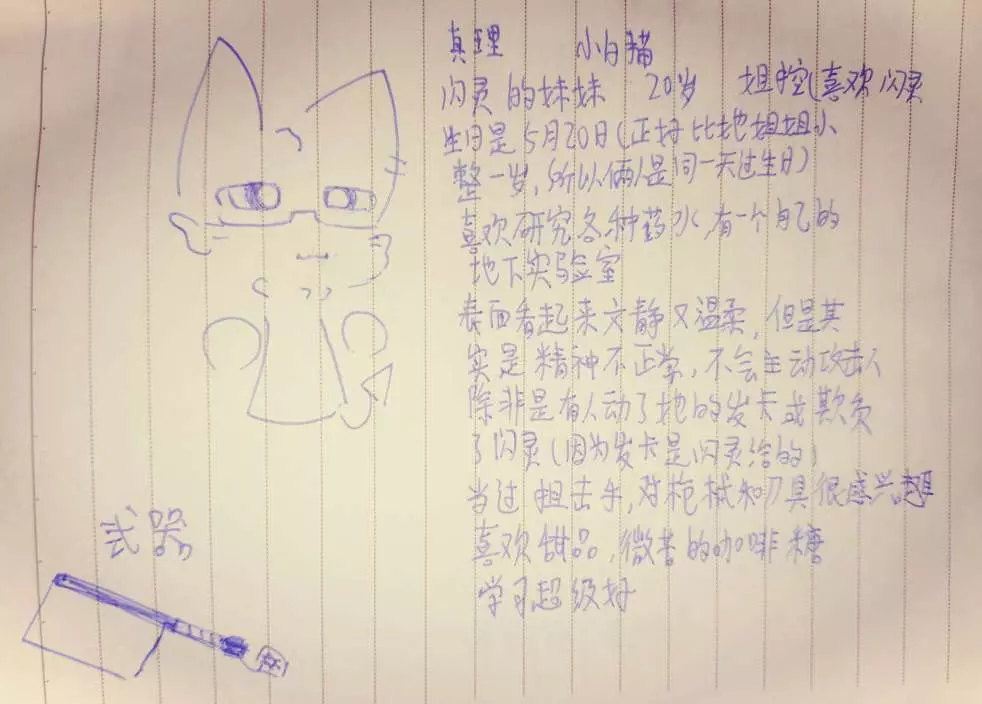 真理 小白猫
闪灵的妹妹 20岁 姐控(喜欢闪灵
生日是5月20日(正好比她姐姐小
整一岁,所以俩人是同一天过生日)
喜欢研究各种药水,有一个自己的
地下实验室
表面看起来文静又温柔,但是其
实是精神不正常,不会主动攻击人
除非是有人动了她的发卡或欺负
了闪灵(因为发卡是闪灵给的)
当过狙击手,对枪械和刀具很感兴趣
喜欢甜品,微苦的咖啡糖
学习超级好
武器